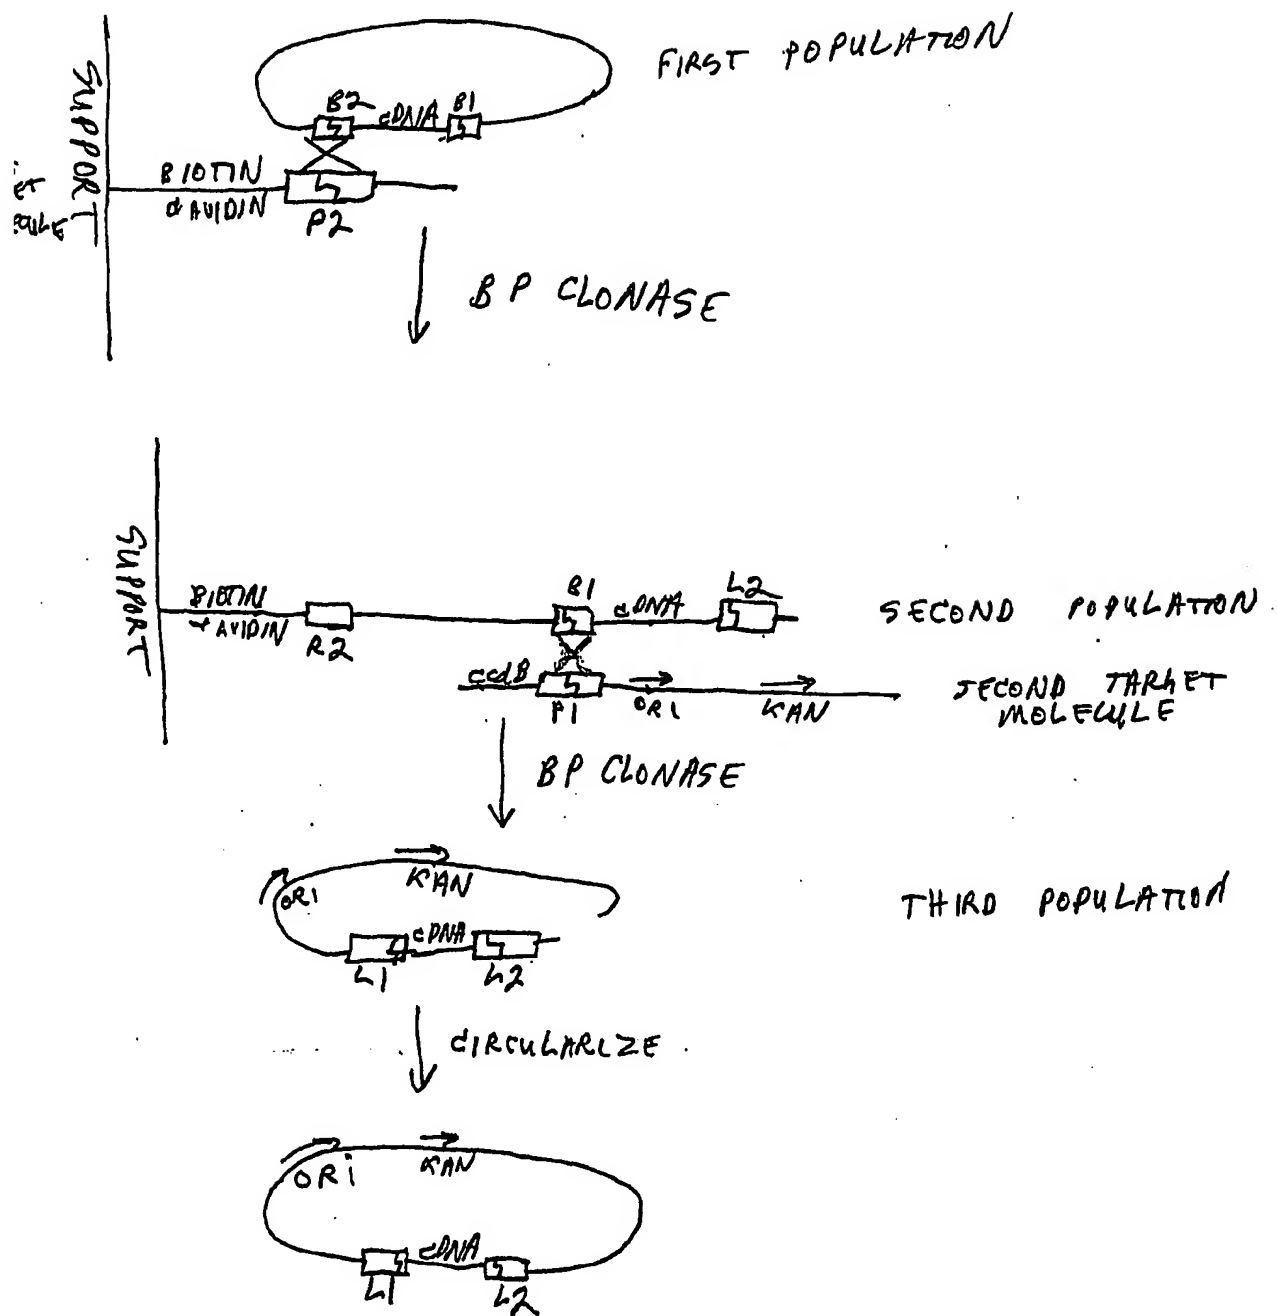 FIRST POPULATION
B2 cDNA B1
SUPPORT
ET
BIOTIN
AVIDIN
P2
BP CLONASE
SUPPORT
BIOTIN
AVIDIN
R2
B1 cDNA L2
SECOND POPULATION
ccdB
P1
ORI
KAN
SECOND TARGET
MOLECULE
BP CLONASE
KAN
ORI
cDNA
L1
L2
THIRD POPULATION
CIRCULARIZE
ORi
KAN
cDNA
L1
L2